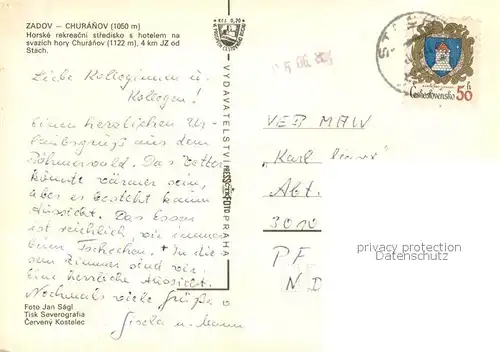 ZADOV – CHURÁŇOV (1050 m)
Horské rekreační středisko s hotelem na
svazích hory Churáňov (1122 m), 4 km JZ od
Stach.
Liebe Kolleginnen u.
Kollegen!
Einen herzlichen Ur-
laubsgruß aus dem
Böhmerwald. Das Wetter
könnte wärmer sein,
aber es besteht kaum
Aussicht. Das Essen
ist reichlich wie immer
beim Tschechen. In die-
sem Zimmer sind wir
eine herrliche Aussicht.
Nochmals viele Grüße
Gisela u. Mann
Foto Jan Ságl
Tisk Severografia
Červený Kostelec
Kčs 0,20
VYDAVATELSTVÍ PRESSFOTO PRAHA
Československo 50 h
VEB MAW
„Karl
Abt.
3010
PF
ND
copyright protected
www.oldthing.de